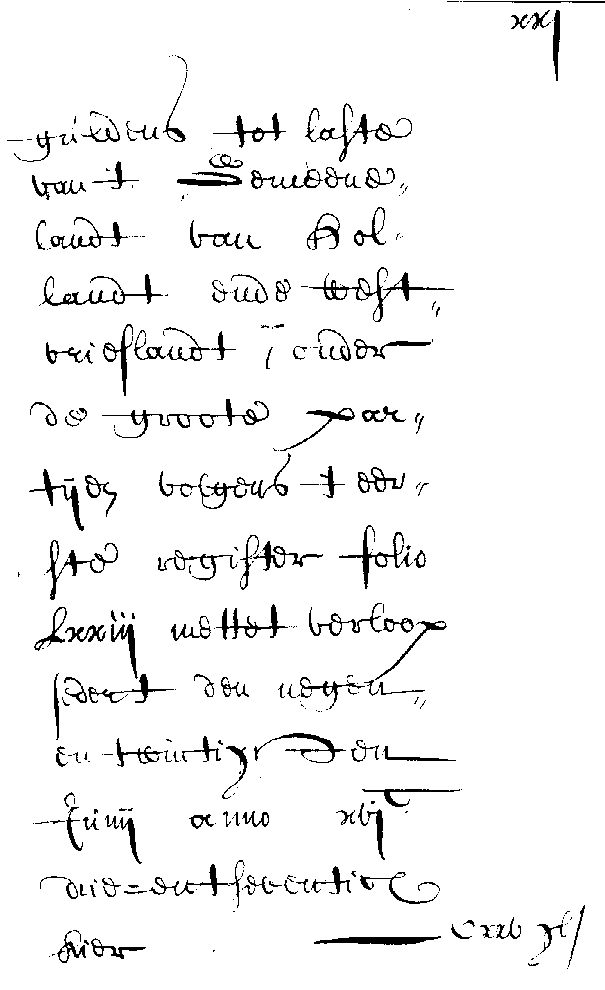 xxj
guldens tot laste
van t Gemeene
landt van Hol-
landt ende West„
vrieslandt onder
de groote par„
tijen volgens t eer„
ste register folio
Lxxiij mettet verloop
sedert den negen„
en twintichsten
Junij anno xvjc
drie=entseventich
hier — Cxxv gl/